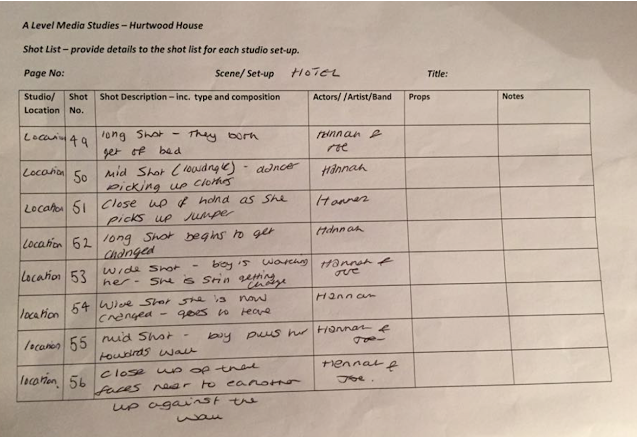 A Level Media Studies – Hurtwood House
Shot List – provide details to the shot list for each studio set-up.
Page No: Scene/ Set-up HOTEL Title:
Studio/ Location Shot No. Shot Description – inc. type and composition Actors/ /Artist/Band Props Notes
Location 49 long Shot - They both Hannah &
get of bed
Location 50 Mid Shot (lowangle) - dancer Hannah
picking up clothes
Location 51 Close up of hand as she
picks up Jumper
Location 52 long Shot begins to get Hannah
changed
Location 53 Wide Shot - boy is watching Hannah &
her - She is Still getting Joe
change
location 54 Wide Shot she is now Hannah
changed - goes to leave
location 55 mid Shot - boy pulls her Hannah &
towards wall Joe
location 56 Close up of their Hannah &
faces near to eachother Joe.
up against the
wall